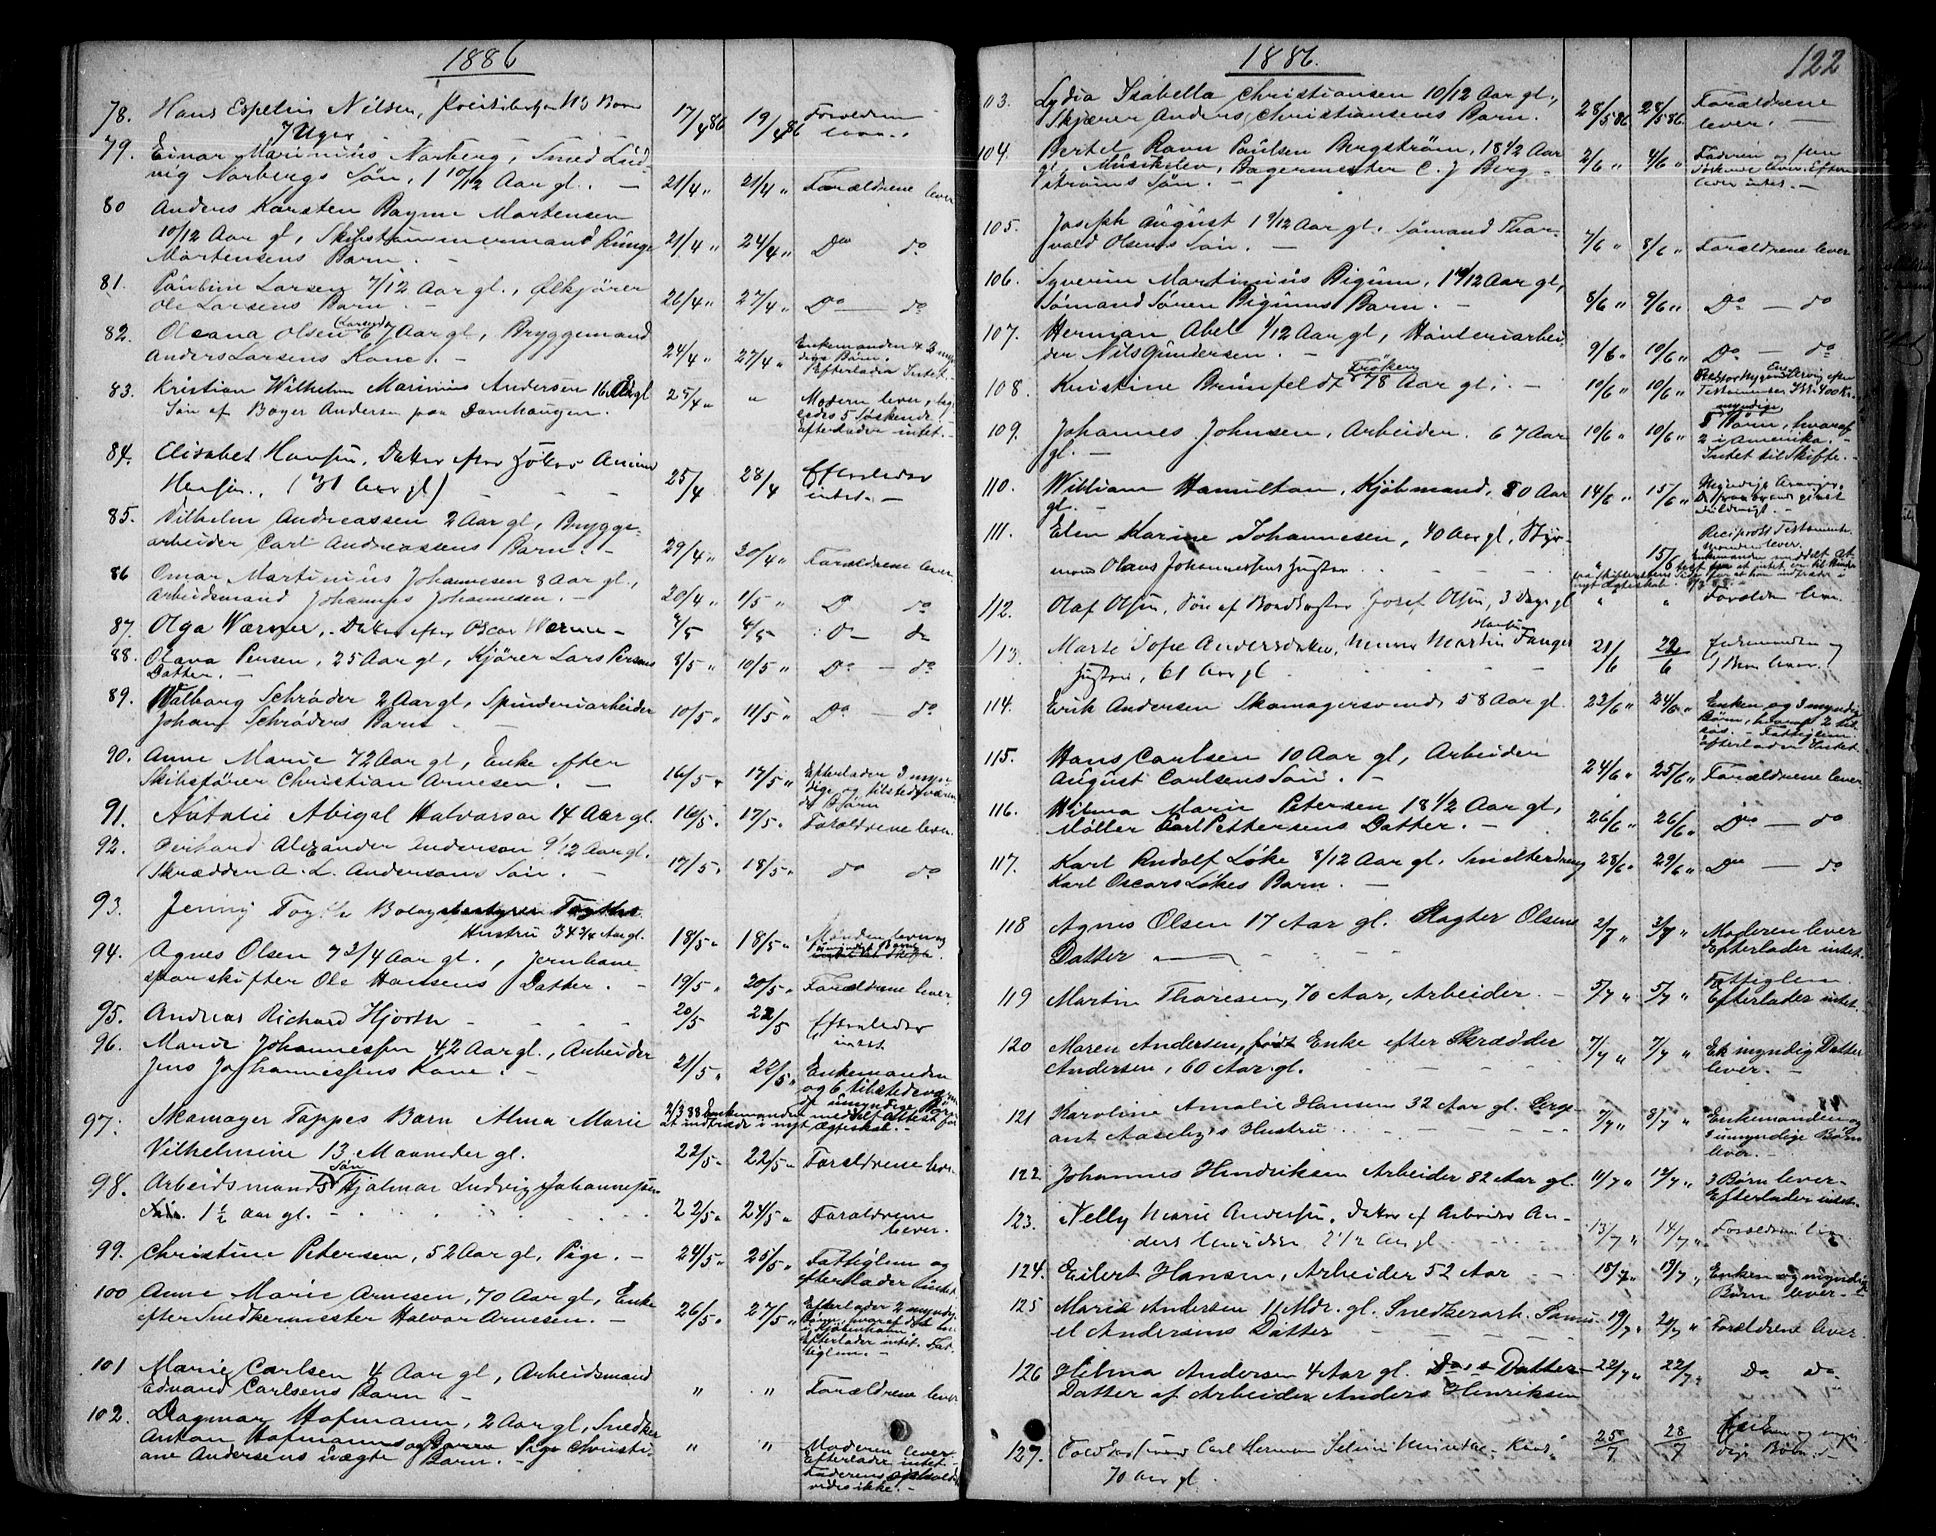 1886
78. Hans Espelin Nilsen, 113 Barn 17/4 86 19/4 86 Forældrene
7 Uger
79. Einar Marinius Norberg, Smed Lud-
vig Norbergs Søn, 1 10/12 Aar gl. - 21/4 " 21/4 " Forældrene lever
80 Anders Karsten Mortensen
10/12 Aar gl, Skibstømmermand Runge 21/4 " 24/4 " Do do
Mortensens Barn. -
81. Pauline Larsen 7/12 Aar gl., Ølkjører
Ole Larsens Barn - 26/4 " 27/4 " Do - do
82. Oleana Olsen 67 Aar gl, Bryggemand
Anders Larsens Kone. - 24/4 " 27/4 " Enkemanden & 3 myn-
dige Børn.
Efterlader Intet. -
83. Kristian Wilhelm Marinius Andersen 16 Aar gl
Søn af Bøyer Andersen paa Damhaugen. 25/4 " " Modern lever, lig-
ledes 5 Søskende
Efterlader intet. -
84. Elisabet Hansen, Datter efter
Hansen, (31 Aar gl) - - 25/4 28/4 Efterlader
intet. -
85. Vilhelm Andreassen 2 Aar gl, Brygge-
arbeider Carl Andreassens Barn. - 29/4 " 30/4 " Forældrene lever
86 Omar Martinius Johannesen 8 Aar gl.,
Arbeidsmand Johannes Johannesen. - 20/4 " 1/5 " D do
87. Olga Warner, Datter efter Oscar Warner - 4/5 4/5 Do - do
88. Olava Persen, 25 Aar gl, Kjører Lars Persens 8/5 " 10/5 " Do - do
Datter. -
89. Walborg Schrøder 2 Aar gl, Spinderiarbeider
Johan Schrøders Barn - 10/5 " 11/5 " Do - do
90. Anne Marie 72 Aar gl, Enke efter
Skibsfører Christian Arnesen. - 16/5 " 17/5 " Efterlader 3 myn
dige og tilstedeværen
de Børn
91. Natalie Abigal Halvorsen 14 Aar gl. 16/5 " 17/5 " Forældrene lever.
92. Gerhard Alexander Anderson 9/12 Aar gl.
Skrædder A. L. Andersons Søn. - 17/5 " 18/5 " do do
93. Jenny
Hustru 34 3/4 Aar gl. 18/5 " 18/5 " Manden lever og
94. Agnes Olsen 7 3/4 Aar gl., Jernbane-
sporskifter Ole Hansens Datter. - 19/5 " 20/5 " Forældrene lever.
95. Andreas Richard Hjorth - 20/5 22/5 Efterlader
intet
96. Marie Johannessen 42 Aar gl., Arbeider
Jens Johannessens Kone. - 21/5 " 22/5 " Enkemanden
og 6 tilstedeværen
de umyndige Børn
2/3 88 Enkemanden meddelt Attest for
at indtræde i nyt Ægteskab. -
97. Skomager Toppes Barn Alma Marie
Vilhelmine 13 Maaneder gl. 22/5 " 22/5 " Forældrene lever.
98. Arbeidsmands Søn Hjalmar Ludvig Johannessen
1 1/2 Aar gl. 22/5 " 24/5 " Forældrene
lever.
99. Christine Petersen, 52 Aar gl, Pige. - 24/5 " 25/5 " Fattiglem og
efterlader intet
100 Anne Marie Arnesen, 70 Aar gl, Enke
efter Snedkermester Halvor Arnesen. - 26/5 " 27/5 " Efterlader 2 myndige
Børn, hvoraf det ene
i Kjøbenhavn.
Efterlader intet. Fat-
tiglem. -
101 Marie Carlsen 4 Aar gl, Arbeidsmand
Edvard Carlsens Barn - " " Forældrene lever
102. Dagmar Hofmann, 2 Aar gl, Snedker
Anton Hofmanns og Pige Christi-
ane Andersens uægte Barn. - " " Moderen lever
Efterlader intet
Faderens ophold
vides ikke. -
1886. 122
103. Lydia Isabella Christiansen 10/12 Aar gl.,
Skjærer Anders Christiansens Barn. - 28/5 86 28/5 86 Forældrene
lever. -
104. Bertel Ravn Paulsen Bergstrøm, 18 1/2 Aar
gl., Musikelev, Bagermester C. J Berg-
strøms Søn. - 2/6 " 4/6 " Faderen og fem
Søskende lever. Efter
lader intet. -
105. Joseph August 1 9/12 Aar gl, Sømand Thor-
vald Olsens Søn. - 7/6 " 8/6 " Forældrene lever
106. Syverin Martinius Bigum, 1 10/12 Aar gl,
Sømand Søren Bigums Barn. - 8/6 " 9/6 " Do - do
107. Herman Abel 1/12 Aar gl, Høvleriarbei-
der Nils Gundersen. - 9/6 " 10/6 " Do - do
108. Kristine Brunfeldt Frøken 78 Aar gl; - 10/6 " 10/6 "
Testamente
109. Johannes Johnsen, Arbeider. 67 Aar
gl. - 10/6 " 10/6 " 5 myndige Børn, hvoraf
2 i Amerika. -
Intet til Skifte. -
110. William Hamilton, Kjøbmand, 80 Aar
gl. - 14/6 " 15/6 " Myndige Arvinger.
111. Elen Karine Johannesen, 40 Aar gl, Styr-
mand Olaus Johannessens Hustru - - " 15/6 Reciprokt Testamente
Manden lever.
Enkemanden meddelt At-
test
112. Olaf Olsen, Søn af Josef Olsen, 3 Dage gl " " Forældre lever.
113. Marte Sofie Andersdatter, Martin Hansen Fanger
Hustru, 61 Aar gl. 21/6 22/6 Enkemanden og
1 Barn lever.
114. Erik Andersen Skomagersvend 58 Aar gl. 23/6 " 24/6 " Enken og 3 myndige
Børn, hvoraf 2 til
søs. - Fattiglem
efterlader Intet
115. Hans Carlsen 10 Aar gl, Arbeider
August Carlsens Søn. - 24/6 " 25/6 " Forældrene lever
116. Hilma Marie Petersen 18 1/2 Aar gl,
Møller Carl Pettersens Datter. - 26/6 " 26/6 " Do - do
117. Karl Rudolf Løke 8/12 Aar gl. Smelterdreng
Karl Oscars Løkes Barn. - 28/6 " 29/6 " Do - do
118 Agnes Olsen 17 Aar gl. Slagter Olsens
Datter - 2/7 " 3/7 " Moderen lever
Efterlader intet.
119 Martin Thoresen, 70 Aar, Arbeider. - 5/7 " 5/7 " Fattiglem
Efterlader intet.
120 Maren Andersen, født Enke efter Skrædder
Andersen, 60 Aar gl. 7/7 " 7/7 " En myndig Datter
lever. -
121 Karoline Amalie Hansen 32 Aar gl. Serge-
ant Aaseby's Hustru 7/7 " 8/7 " Enkemanden og
umyndige Børn
lever. -
122 Johannes Hendriksen Arbeider 82 Aar gl. 11/7 " 12/7 " 3 Børn lever -
Efterlader intet.
123. Nelly Marie Andersen, Datter af Arbeider An-
ders 2 1/2 Aar gl 13/7 " 14/7 " Forældrene lever.
124. Eilert Hansen, Arbeider 52 Aar - 18/7 " 19/7 " Enken og myndige
Børn lever -
125 Marie Andersen 11 Mdr. gl. Snedkerarb. Samu-
el Andersens Datter 19/7 " 20/7 " Forældrene lever.
126 Hilma Andersen 4 Aar gl.
Datter af Arbeider Anders Henriksen 22/7 " 22/7 " Do Do
127. Carl Herman
70 Aar gl. 25/7 28/7 Enken og myn
dige Børn. -